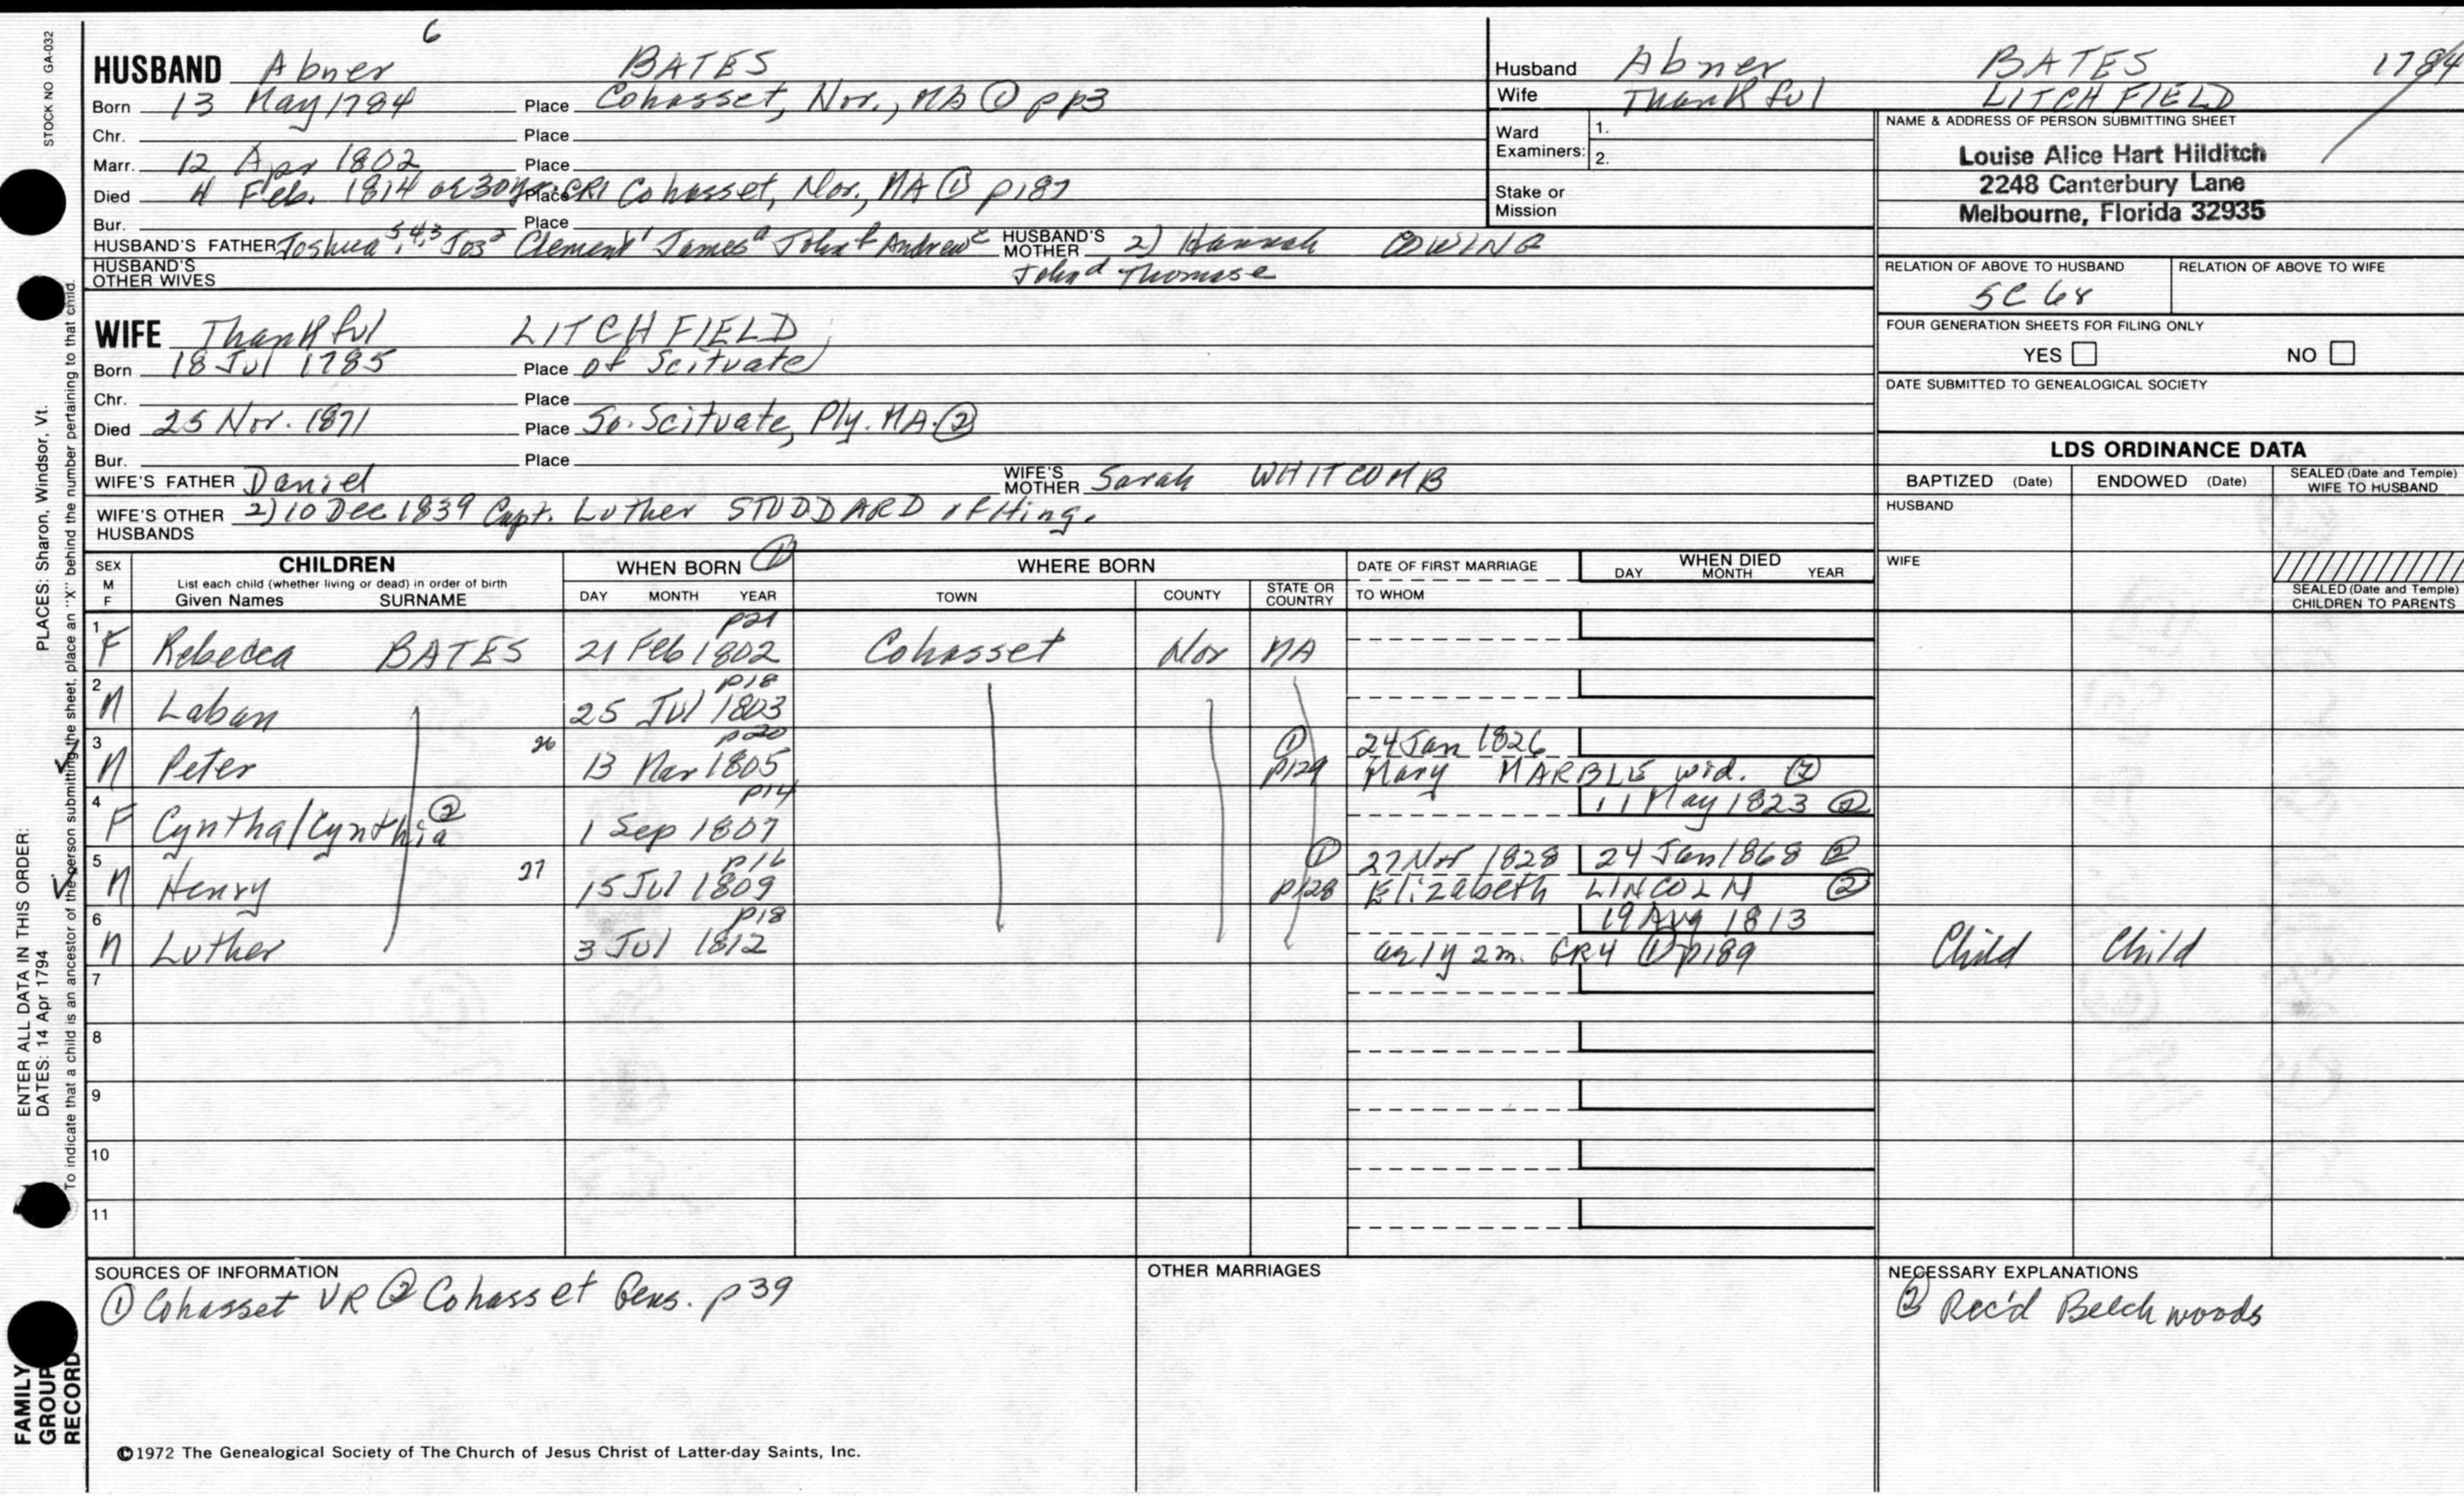 6
HUSBAND Abner BATES
Born 13 May 1784 Place Cohasset, Nor., MA ① pp3
Chr. Place
Marr. 12 Apr 1802 Place
Died 4 Feb. 1814 ae 30 yrs. Place CR1 Cohasset, Nor., MA ① p187
Bur. Place
HUSBAND'S FATHER Joshua 5,4,3 Jos 2 Clement 1 James a John b Andrew c HUSBAND'S MOTHER 2) Hannah COWING
HUSBAND'S OTHER WIVES John d Thomas e
WIFE Thankful LITCHFIELD
Born 18 Jul 1785 Place of Scituate
Chr. Place
Died 25 Nov. 1871 Place So. Scituate, Ply. MA. ②
Bur. Place
WIFE'S FATHER Daniel WIFE'S MOTHER Sarah WHITCOMB
WIFE'S OTHER HUSBANDS 2) 10 Dec 1839 Capt. Luther STODDARD of Hing.
Husband Abner BATES 1784
Wife Thankful LITCHFIELD
Ward Examiners: 1.
2.
Stake or Mission
NAME & ADDRESS OF PERSON SUBMITTING SHEET
Louise Alice Hart Hilditch
2248 Canterbury Lane
Melbourne, Florida 32935
RELATION OF ABOVE TO HUSBAND RELATION OF ABOVE TO WIFE
5C 6r
FOUR GENERATION SHEETS FOR FILING ONLY
YES NO
DATE SUBMITTED TO GENEALOGICAL SOCIETY
LDS ORDINANCE DATA
BAPTIZED (Date) ENDOWED (Date) SEALED (Date and Temple) WIFE TO HUSBAND
HUSBAND
WIFE
SEALED (Date and Temple) CHILDREN TO PARENTS
SEX M F CHILDREN WHEN BORN ① WHERE BORN DATE OF FIRST MARRIAGE WHEN DIED
List each child (whether living or dead) in order of birth
Given Names SURNAME DAY MONTH YEAR TOWN COUNTY STATE OR COUNTRY TO WHOM DAY MONTH YEAR
p21
1 F Rebecca BATES 21 Feb 1802 Cohasset Nor MA
p18
2 M Laban 25 Jul 1803
p20
3 M Peter 26 13 Mar 1805 ① p129 24 Jan 1826 Mary MARBLE wid. ②
p14
4 F Cyntha/Cynthia ② 1 Sep 1807 11 May 1823 ②
p16
5 M Henry 27 15 Jul 1809 ① p128 27 Nov 1828 24 Jan 1868 ② Elizabeth LINCOLN ②
p18
6 M Luther 3 Jul 1812 19 Aug 1813
ae 1y 2m. GR4 ① p189 Child Child
7
8
9
10
11
SOURCES OF INFORMATION
① Cohasset VR ② Cohasset Gens. p39
OTHER MARRIAGES
NECESSARY EXPLANATIONS
② Rec'd Beechwoods
©1972 The Genealogical Society of The Church of Jesus Christ of Latter-day Saints, Inc.
STOCK NO GA-032
PLACES: Sharon, Windsor, Vt.
ENTER ALL DATA IN THIS ORDER:
DATES: 14 Apr 1794
To indicate that a child is an ancestor of the person submitting the sheet, place an "X" behind the number pertaining to that child.
FAMILY GROUP RECORD